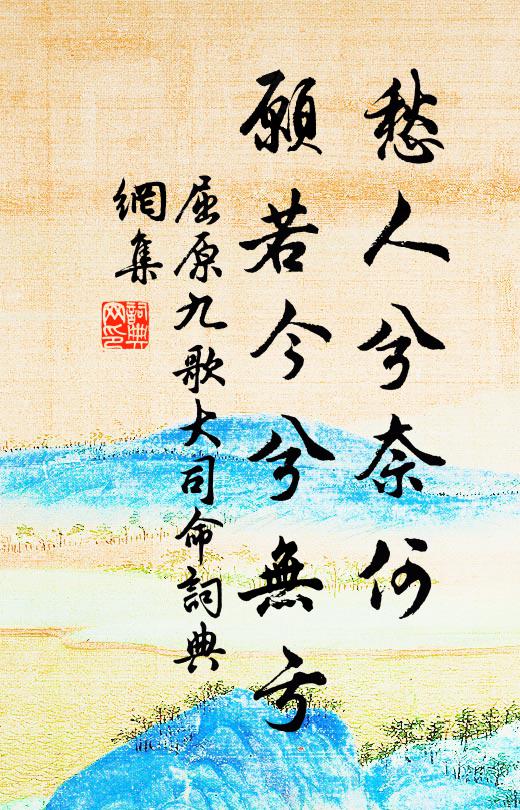 愁人兮奈何
願若今兮無亏
屈原九歌大司命詞典
網集
詞典
网印